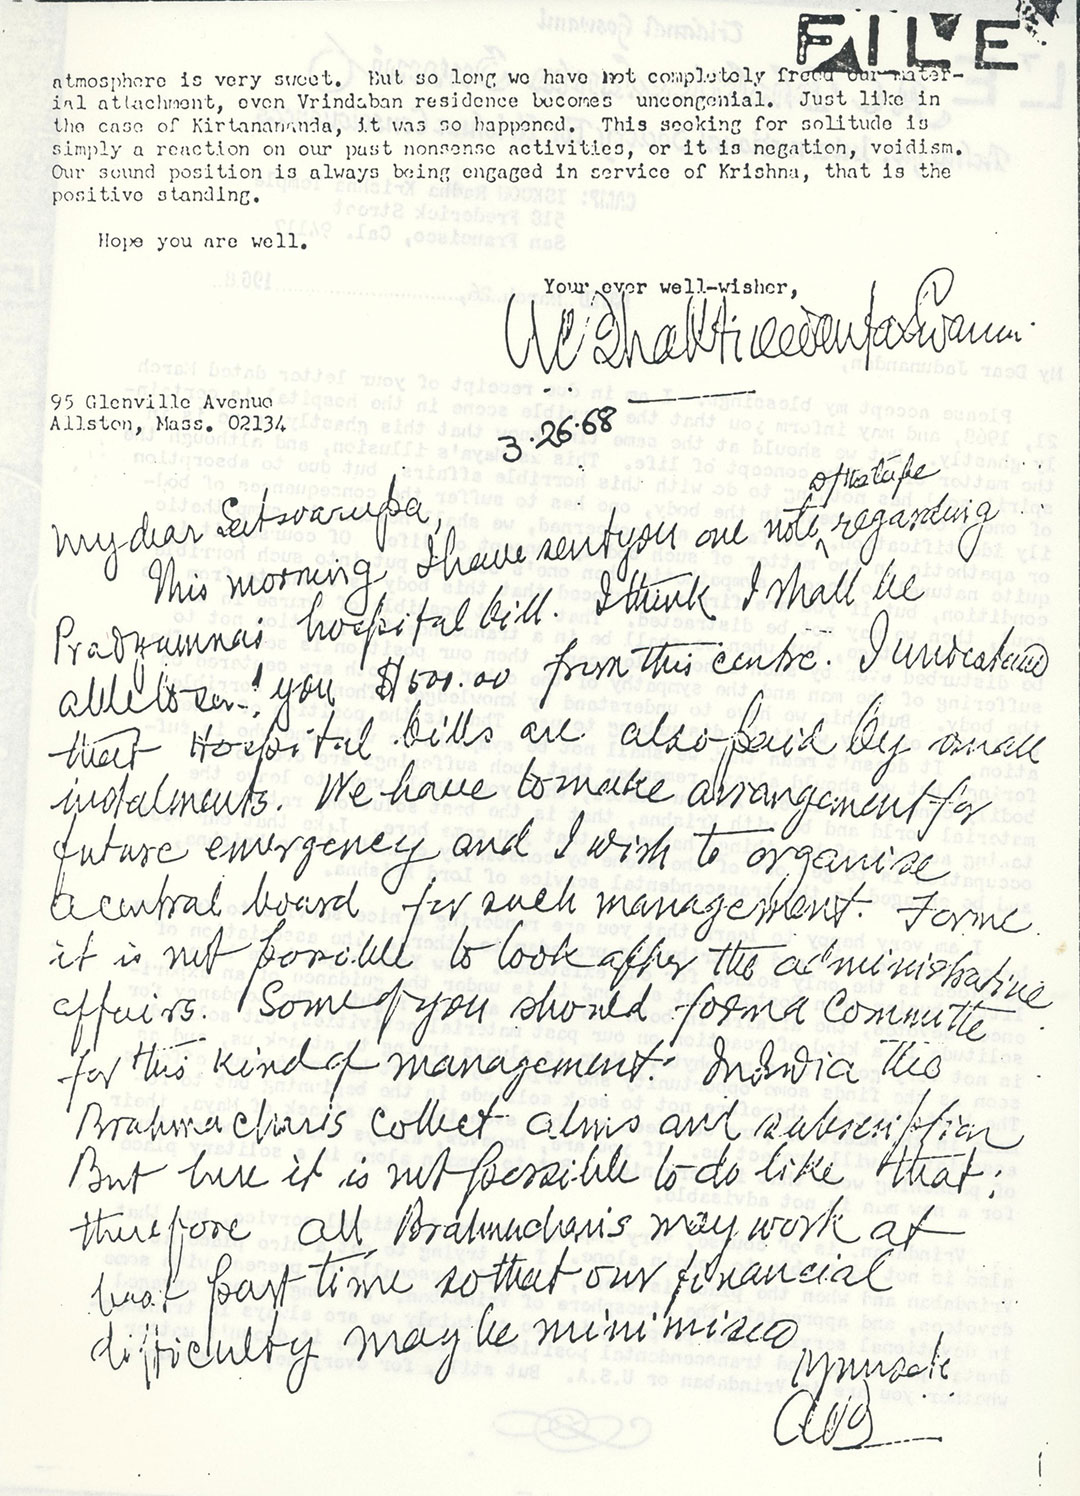 FILE
atmosphere is very sweet. But so long we have not completely freed our mater-
ial attachment, even Vrindaban residence becomes uncongenial. Just like in
the case of Kirtanananda, it was so happened. This seeking for solitude is
simply a reaction on our past nonsense activities, or it is negation, voidism.
Our sound position is always being engaged in service of Krishna, that is the
positive standing.
Hope you are well.
Your ever well-wisher,
A.C. Bhaktivedanta Swami
95 Glenville Avenue
Allston, Mass. 02134
3.26.68
My dear Satsvarupa,
This morning I have sent you one note, of the tape regarding
Pradyumna's hospital bill. I think I shall be
able to send you $500.00 from this centre. I understand
that Hospital bills are also paid by small
instalments. We have to make arrangement for
future emergency and I wish to organise
a central board for such management. For me
it is not possible to look after the administrative
affairs. Some of you should form a Committe
for this kind of management. In India the
Brahmacharis collect alms and subscription
But here it is not possible to do like that;
therefore all Brahmacharis may work at
least part time so that our financial
difficulty may be minimised
ACB